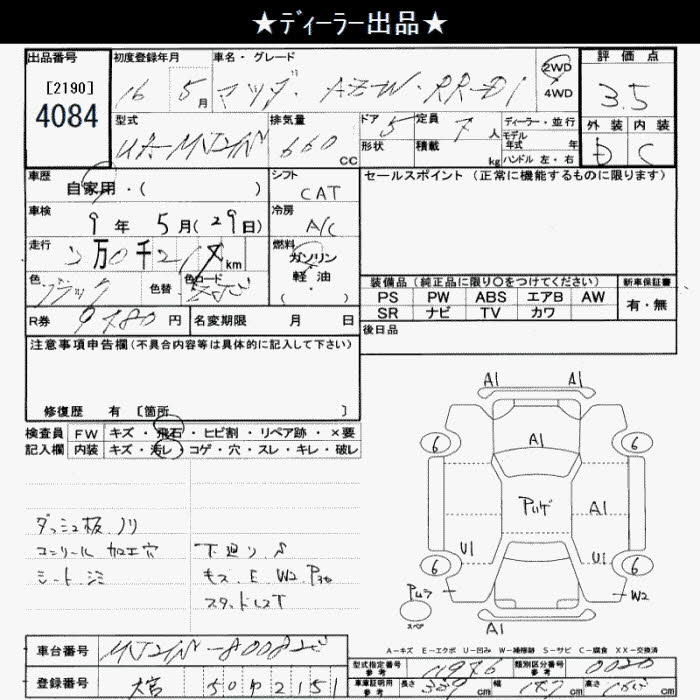 ★ディーラー出品★
出品番号 初度登録年月 車名・グレード 評価点
[2190] 16 5月 マツダ・AZW・RR-DI 2WD 4WD 3.5
4084
型式 排気量 ドア 定員 ディーラー・並行 外装 内装
UA-MJ21W 660 CC 5 7人 モデル年式 年 D C
形状 積載 kg ハンドル 左・右
車歴 自家用・( ) シフト CAT セールスポイント(正常に機能するものに限ります)
車検 9年 5月(29日) 冷房 A/C
走行 万 千 km 燃料 ガソリン・軽油・( )
色 ブラック 色替 色コード
装備品(純正品に限り○をつけてください) 新車保証書
PS PW ABS エアB AW 有・無
SR ナビ TV カワ
R券 9780円 名変期限 月 日 後日品
注意事項申告欄(不具合内容等は具体的に記入して下さい)
修復歴 有 [箇所 ]
検査員 FW キズ・飛石・ヒビ割・リペア跡・×要
記入欄 内装 キズ・汚レ・コゲ・穴・スレ・キレ・破レ
A1 A1
6 A1 6
Pいげ A1
U1 U1
6 6
W2
スペア A1
ダッシュ板ノリ
コンソール 加工穴 下廻りS
シート シミ キズ E W2 P
スタッドレスT
A-キズ E-エクボ U-凹み W-補修跡 S-サビ C-腐食 XX-交換済
車台番号 MJ21W-
登録番号 大宮 50 2151
型式指定番号 参考 類別区分番号 参考 0020
車庫証明用 参考 長さ 339 cm 幅 147 cm 高さ cm